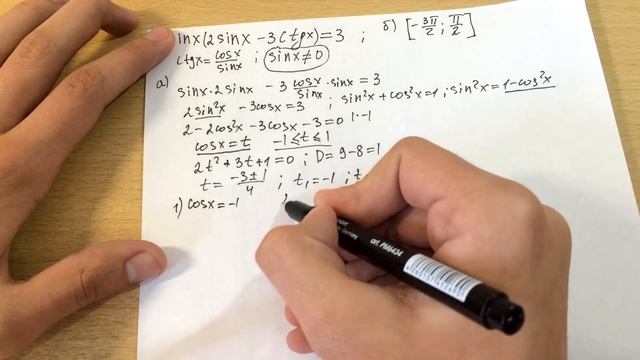 inx(2sinx - 3ctgx) = 3 ; б) [-3π/2 ; π/2]
ctgx = cosx/sinx ; sinx ≠ 0
а) sinx·2sinx - 3 cosx/sinx · sinx = 3
2sin²x - 3cosx = 3 ; sin²x + cos²x = 1 ; sin²x = 1-cos²x
2 - 2cos²x - 3cosx - 3 = 0 |·-1
cosx = t -1 ≤ t ≤ 1
2t² + 3t + 1 = 0 ; D = 9 - 8 = 1
t = -3±1/4 ; t₁ = -1 ; t
1) cosx = -1
Germany
art. PM6434